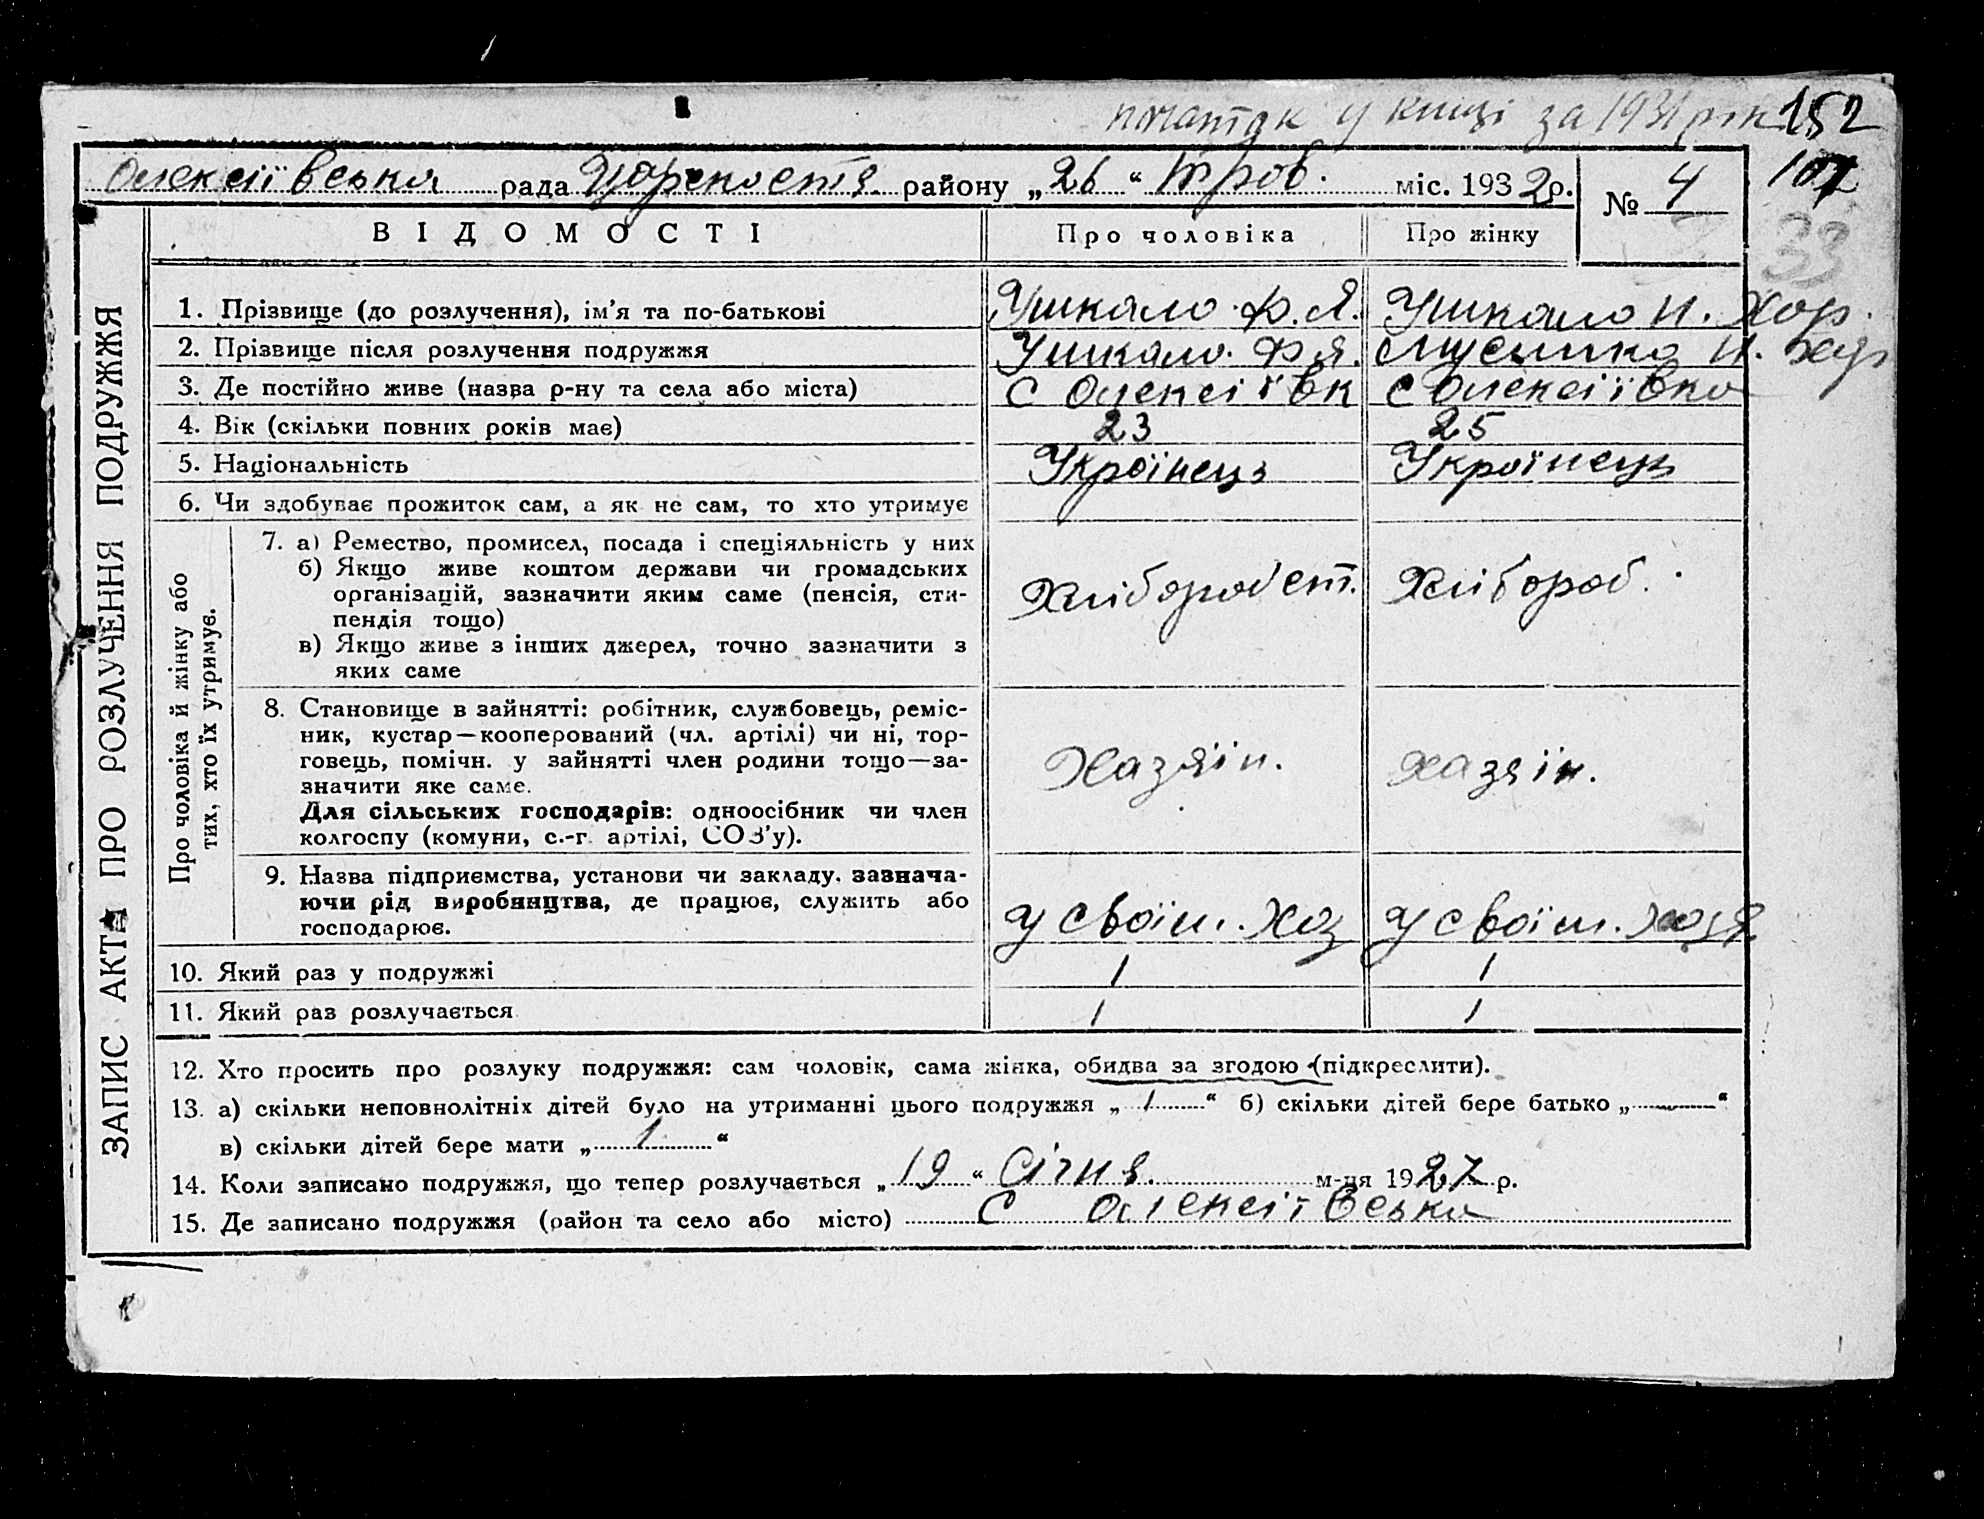 початок у книзі за 1931 рік 152
107
33
Олексіївська рада района „26“ міс. 1932р. № 4
ВІДОМОСТІ Про чоловіка Про жінку
ЗАПИС АКТА ПРО РОЗЛУЧЕННЯ ПОДРУЖЖЯ
1. Прізвище (до розлучення), ім’я та по-батькові Ушкало Ф. Я. Ушкало Н. Хар.
2. Прізвище після розлучення подружжя Ушкало Ф. Я. Н. Хар
3. Де постійно живе (назва р-ну та села або міста) с Олексіівк с Олексіївка
4. Вік (скільки повних років має) 23 25
5. Національність Українець Українець
6. Чи здобуває прожиток сам, а як не сам, то хто утримує
Про чоловіка й жінку або
тих, хто їх утримує.
7. а) Ремество, промисел, посада і спеціяльність у них
б) Якщо живе коштом держави чи громадських
організацій, зазначити яким саме (пенсія, сти-
пендія тощо)
в) Якщо живе з інших джерел, точно зазначити з
яких саме
Хлібороб. Хлібороб.
8. Становище в зайнятті: робітник, службовець, реміс-
ник, кустар—кооперований (чл. артілі) чи ні, тор-
говець, помічн. у зайнятті член родини тощо—за-
значити яке саме.
Для сільських господарів: одноосібник чи член
колгоспу (комуни, с.-г. артілі, СОЗ’у).
Хазяін. хазяін.
9. Назва підприємства, установи чи закладу, зазнача-
ючи рід виробництва, де працює, служить або
господарює.
у своїм. хоз у своїм. хозя
10. Який раз у подружжі 1 1
11. Який раз розлучається 1 1
12. Хто просить про розлуку подружжя: сам чоловік, сама жінка, обидва за згодою (підкреслити).
13. а) скільки неповнолітніх дітей було на утриманні цього подружжя „1“ б) скільки дітей бере батько „—“
в) скільки дітей бере мати „1“
14. Коли записано подружжя, що тепер розлучається „19“ Січня м-ця 1927 р.
15. Де записано подружжя (район та село або місто) с Олексіївська